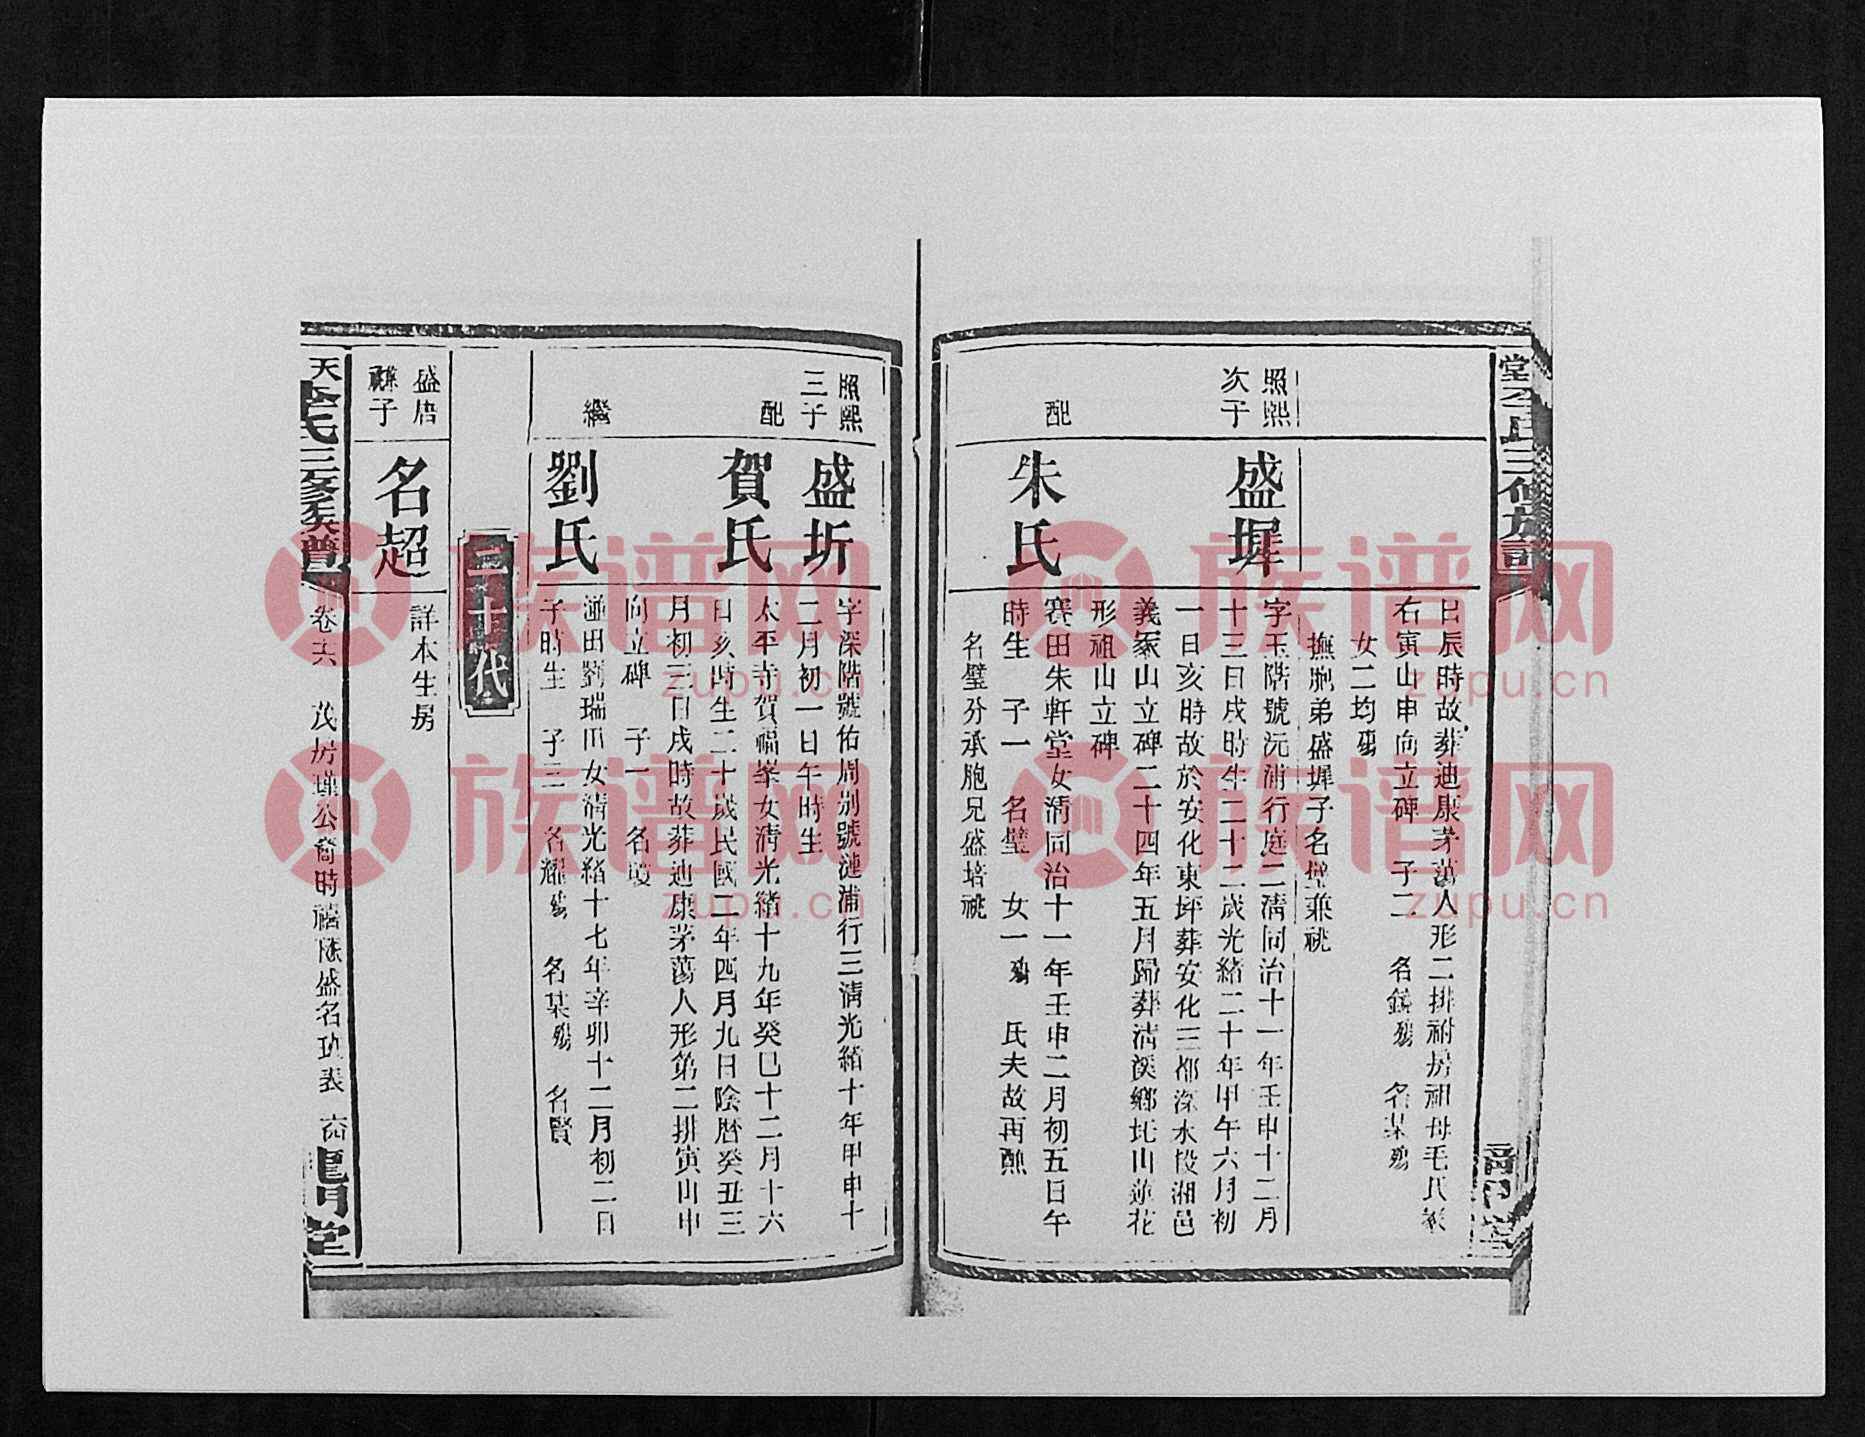 日辰時故葬迪康茅蕩人形二排祔房祖母毛氏冢
右寅山申向立碑　子二　名鑄殤　名某殤
女二均殤
撫胞弟盛墀子名璧兼祧
照熙
次子
盛墀
字玉階號沅浦行庭二淸同治十一年壬申十二月
十三日戌時生二十二歲光緒二十年甲午六月初
一日亥時故於安化東坪葬安化三都深水段湘邑
義冢山立碑二十四年五月歸葬淸溪鄉圫山蓮花
形祖山立碑
配
朱氏
賽田朱軒堂女淸同治十一年壬申二月初五日午
時生　子一　名璧　女一殤　氏夫故再醮
名璧分承胞兄盛培祧
照熙
三子
盛圻
字深階號佑周別號漣浦行三淸光緒十年甲申十
二月初一日午時生
配
賀氏
太平寺賀福峯女淸光緒十九年癸巳十二月十六
日亥時生二十歲民國二年四月九日陰曆癸丑三
月初三日戌時故葬迪康茅蕩人形第二排寅山申
向立碑　子一　名
繼
劉氏
劉瑞田女淸光緒十七年辛卯十二月初二日
子時生　子三　名耀殤　名某殤　名賢
二十代
盛唐
子
名超
詳本生房
天
氏三修族譜
卷六　茂房瑾公裔時福　盛名　表
堂
族譜网
zupu.cn
族譜网
zupu.cn
族譜网
zupu.cn
族譜网
zupu.cn